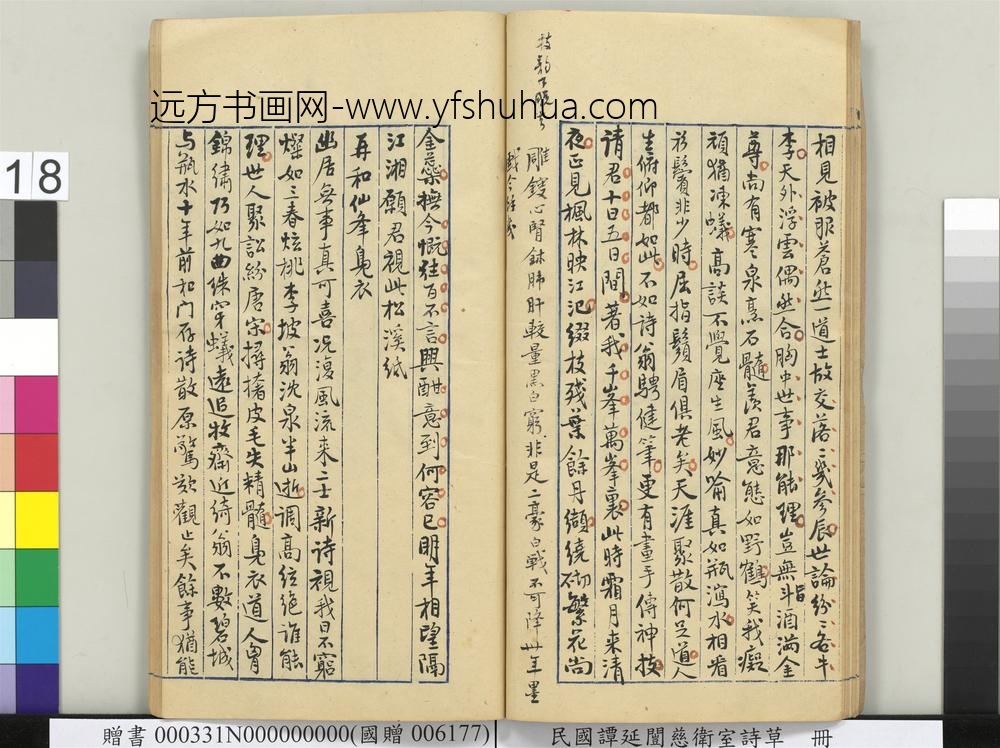 技韵下脱去
远方书画网-www.yfshuhua.com
相見被服蒼然一道士故交落〻幾參辰世論紛〻各牛
李天外浮雲偶然合胸中世事那能理豈無斗酒滿金
尊尚有寒泉烹石髓羨君意態如野鶴笑我癡
頑猶凍蟻高談不覺座生風妙喻真如瓶瀉水相看
鬚鬢非少時屈指鬚眉俱老矣天涯聚散何足道人
生俯仰都如此不如詩翁騁健筆更有畫手傳神技
請君十日五日間著我千峯萬峯裏此時霜月来清
夜正見楓林映江氾綴枝殘葉餘丹纈繞砌繁花尚
雕鎪心腎鉥肺肝較量黑白窮非是二豪白戰不可降
卅年墨
金蕊撫今慨往百不言興酣意到何容已明年相望隔
江湘願君視此松溪紙
再和仙峯凫衣
幽居無事真可喜况復風流来二士新詩視我日不窮
燦如三春炫桃李坡翁沈泉半山逝調高絃絶誰能
理世人聚訟紛唐宋撏撦皮毛失精髓凫衣道人胷
錦繡乃如九曲珠穿蟻遠追牧齋近綺翁不數碧城
与瓶水十年前和门存诗散原驚歎觀止矣餘事猶能
18
贈書 000331N000000000(國贈 006177)
民國譚延闓慈衛室詩草 冊